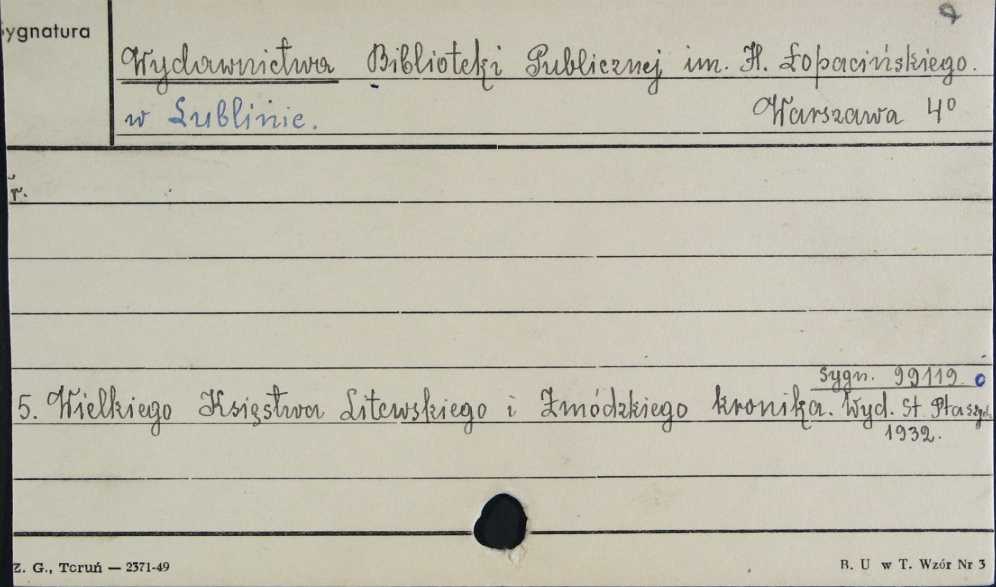 Sygnatura
Wydawnictwa Biblioteki Publicznej im. H. Łopacińskiego.
w Lublinie. Warszawa 4°
r.
sygn. 99119
5. Wielkiego Księstwa Litewskiego i Żmódzkiego kronika. Wyd. St. Ptaszyc.
1932.
Z. G., Toruń — 2371-49 B. U w T. Wzór Nr 3